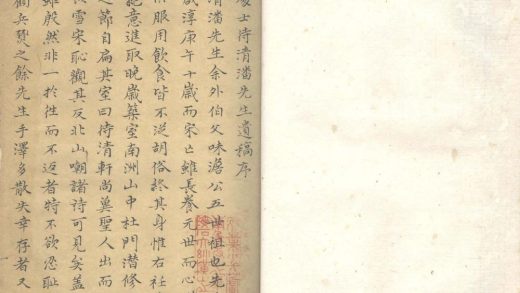 處士待清潘先生遺稿序
清潘先生余外伯父味澹公五世祖也先
淳庚午十歲而宋亡雖長養元世而心
服用飲食皆不從胡俗終其身惟右衽
意進取晚歲築室南洲山中杜門潛修
之節自扁其室曰待清軒尚冀聖人出而
雪宋恥觀其反北山嘲諸詩可見矣蓋
雖然非一於徃而不返者特不欲忍恥
兵燹之餘先生手澤多散失幸存者又